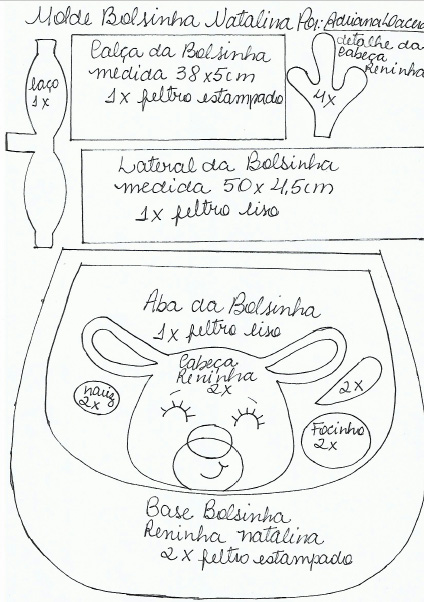 Molde Bolsinha Natalina Por: Adriana Dacera
laço
1x
Calça da Bolsinha
medida 38x5cm
1x feltro estampado
detalhe da
cabeça
Reninha
4x
Lateral da Bolsinha
medida 50x4,5cm
1x feltro liso
Aba da Bolsinha
1x feltro liso
Cabeça
Reninha
2x
nariz
2x
2x
Focinho
2x
Base Bolsinha
Reninha natalina
2x feltro estampado